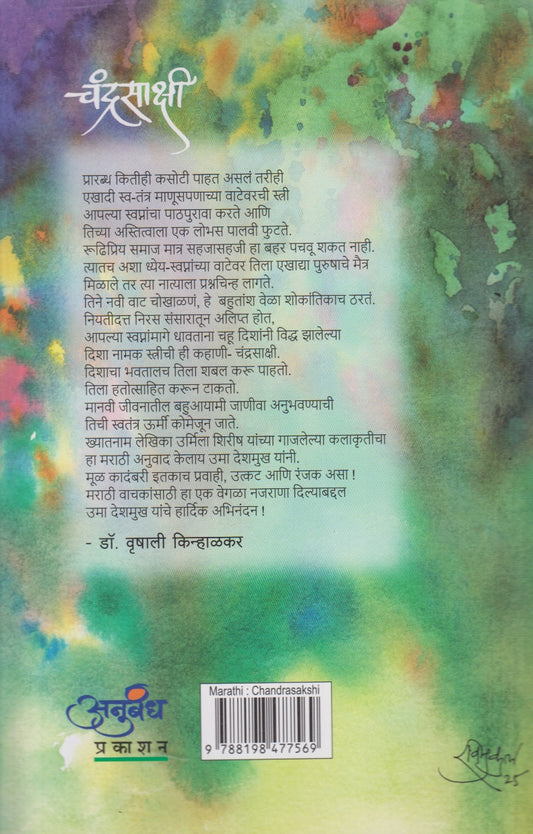 चंद्रसाक्षी
प्रारब्ध कितीही कसोटी पाहत असलं तरीही
एखादी स्व-तंत्र माणूसपणाच्या वाटेवरची स्त्री
आपल्या स्वप्नांचा पाठपुरावा करते आणि
तिच्या अस्तित्वाला एक लोभस पालवी फुटते.
रूढिप्रिय समाज मात्र सहजासहजी हा बहर पचवू शकत नाही.
त्यातच अशा ध्येय-स्वप्नांच्या वाटेवर तिला एखाद्या पुरुषाचे मैत्र
मिळाले तर त्या नात्याला प्रश्नचिन्ह लागते.
तिने नवी वाट चोखाळणं, हे बहुतांश वेळा शोकांतिकाच ठरतं.
नियतीदत्त निरस संसारातून अलिप्त होत,
आपल्या स्वप्नांमागे धावताना चहू दिशांनी विद्ध झालेल्या
दिशा नामक स्त्रीची ही कहाणी- चंद्रसाक्षी.
दिशाचा भवतालच तिला शबल करू पाहतो.
तिला हतोत्साहित करून टाकतो.
मानवी जीवनातील बहुआयामी जाणीवा अनुभवण्याची
तिची स्वतंत्र ऊर्मी कोमेजून जाते.
ख्यातनाम लेखिका उर्मिला शिरीष यांच्या गाजलेल्या कलाकृतीचा
हा मराठी अनुवाद केलाय उमा देशमुख यांनी.
मूळ कादंबरी इतकाच प्रवाही, उत्कट आणि रंजक असा !
मराठी वाचकांसाठी हा एक वेगळा नजराणा दिल्याबद्दल
उमा देशमुख यांचे हार्दिक अभिनंदन !
- डॉ. वृषाली किन्हाळकर
अनुबंध
प्रकाशन
Marathi : Chandrasakshi
9 788198 477569
25